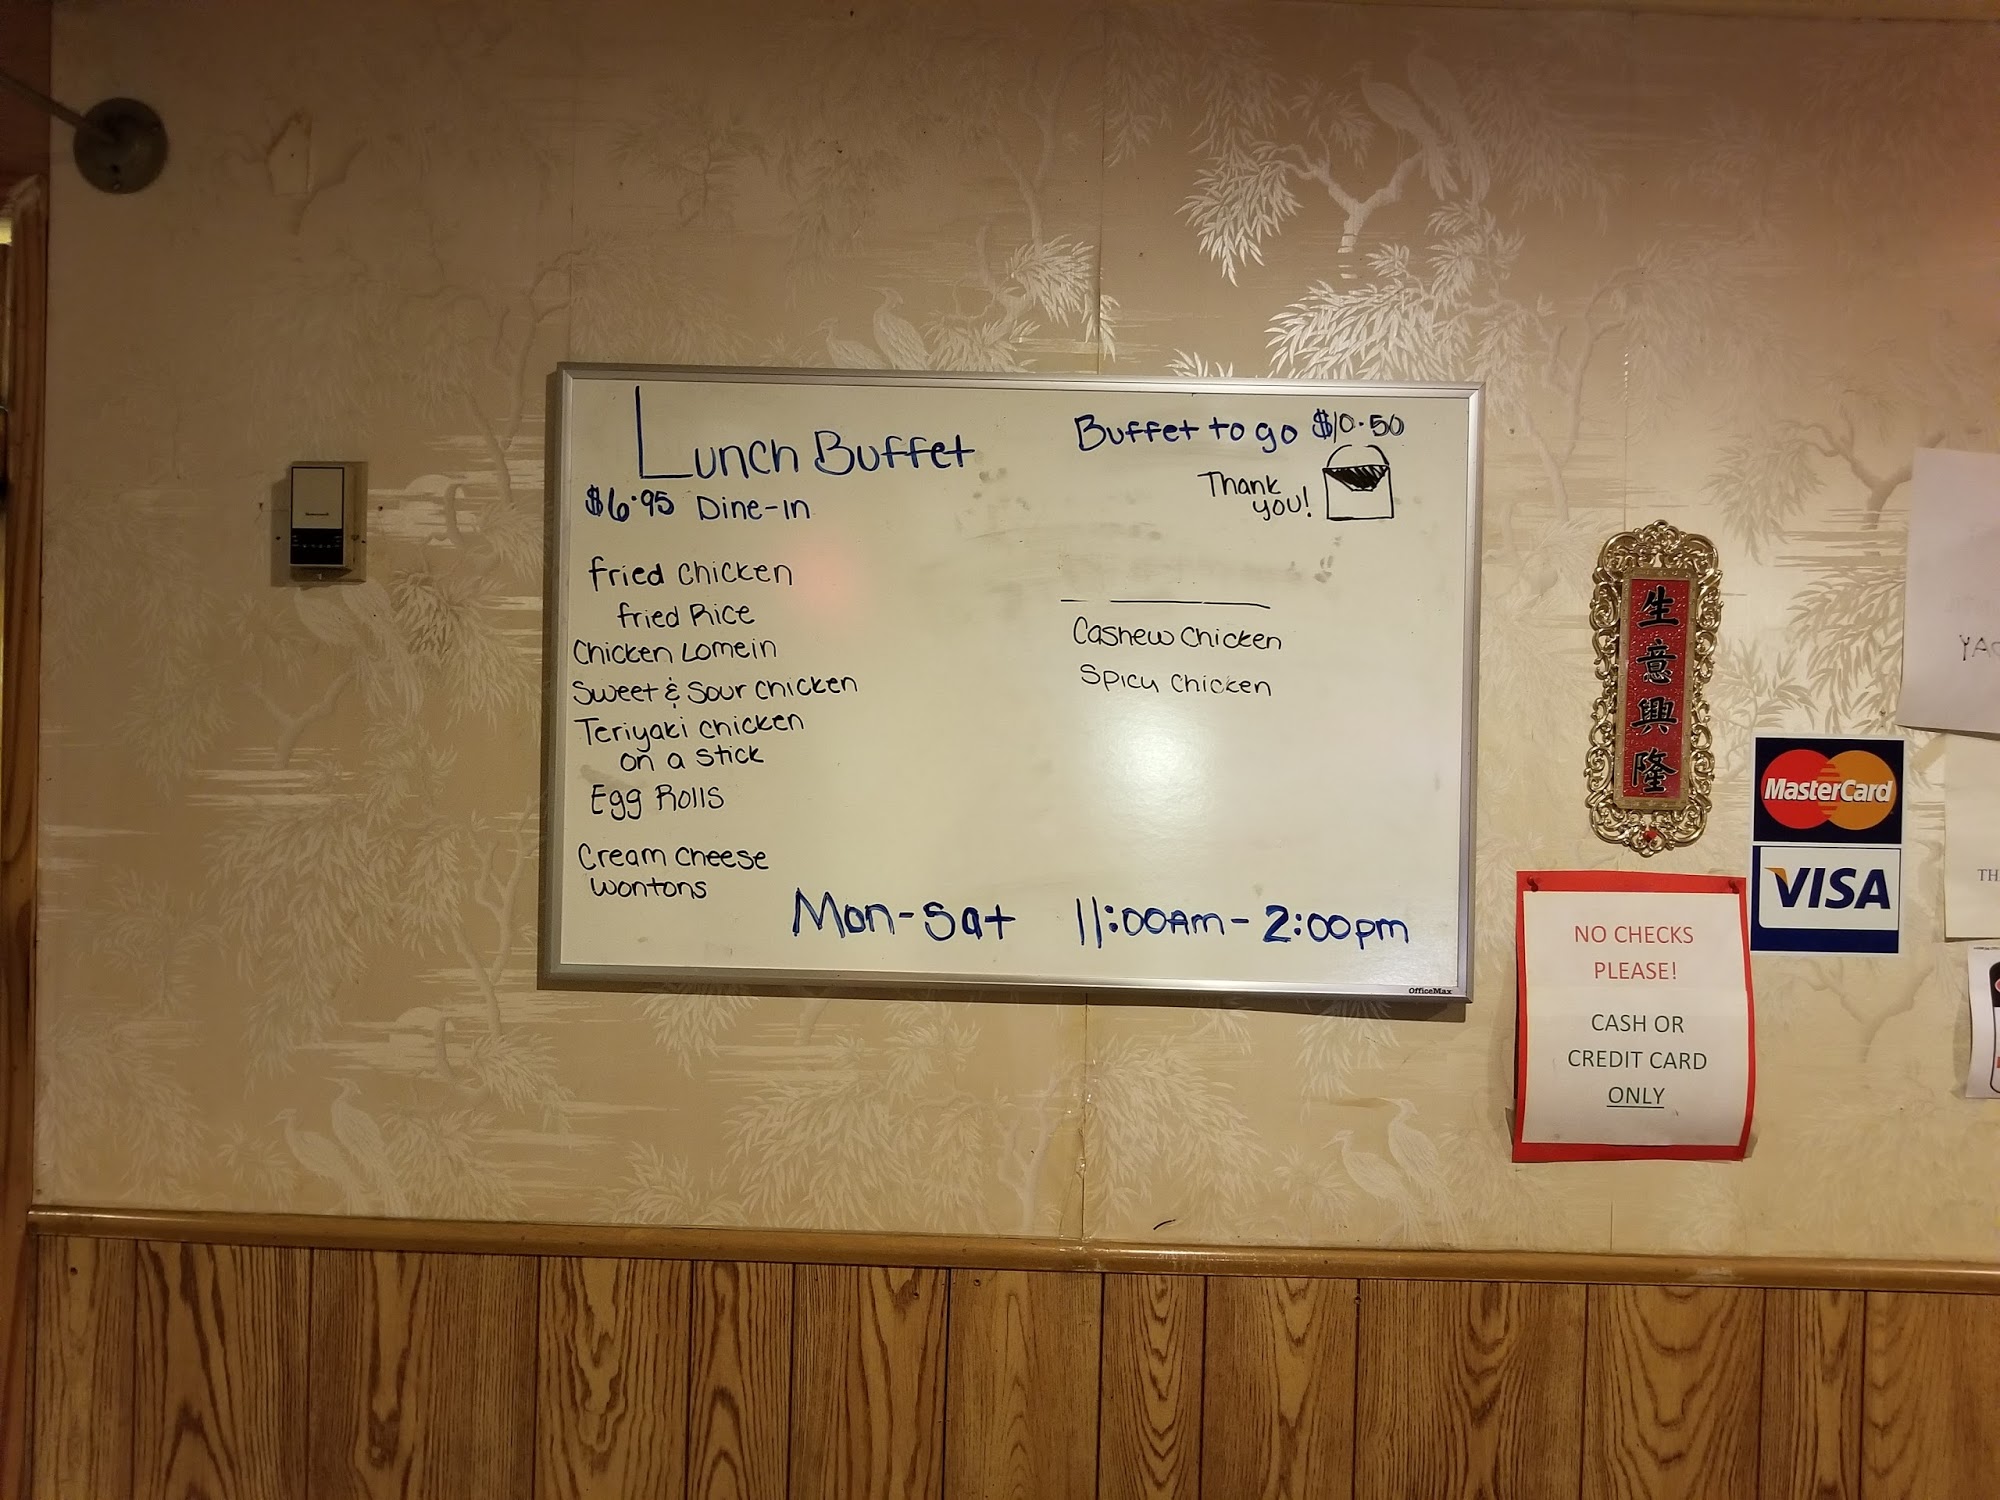 Lunch Buffet
$6.95 Dine-in
Fried Chicken
Fried Rice
Chicken Lomein
Sweet & Sour Chicken
Teriyaki Chicken
on a stick
Egg Rolls
Cream Cheese
Wontons
Buffet to go $10.50
Thank
you!
Cashew Chicken
Spicy Chicken
Mon-Sat 11:00AM-2:00pm
OfficeMax
生意興隆
MasterCard
VISA
NO CHECKS
PLEASE!
CASH OR
CREDIT CARD
ONLY